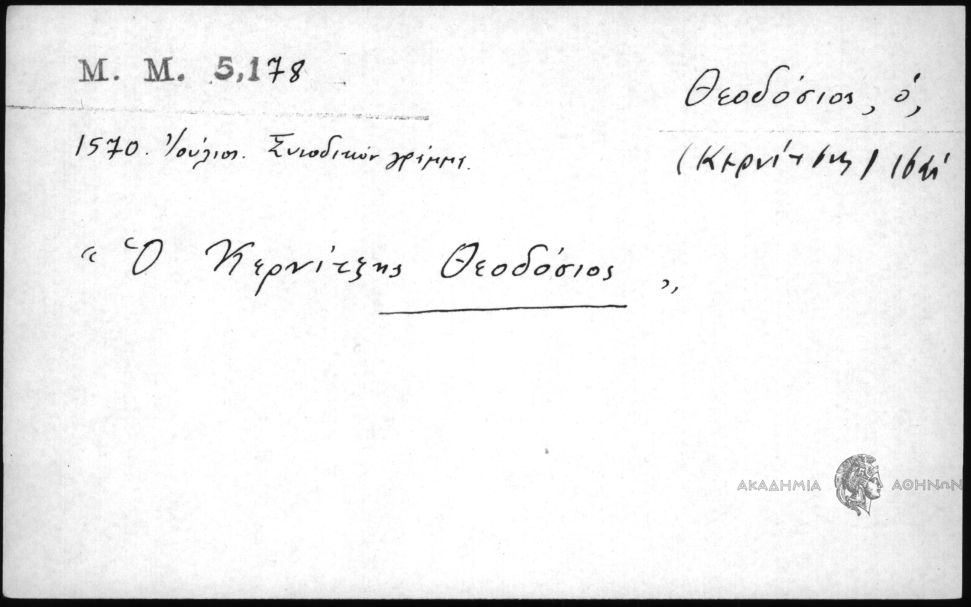 Μ. Μ. 5,178
Θεοδόσιος, ὁ,
1570. Ἰούλιος. Συνοδικὸν γράμμα.
(Κερνίτσης)
“ Ὁ Κερνίτζης Θεοδόσιος „
ΑΚΑΔΗΜΙΑ ΑΘΗΝΩΝ